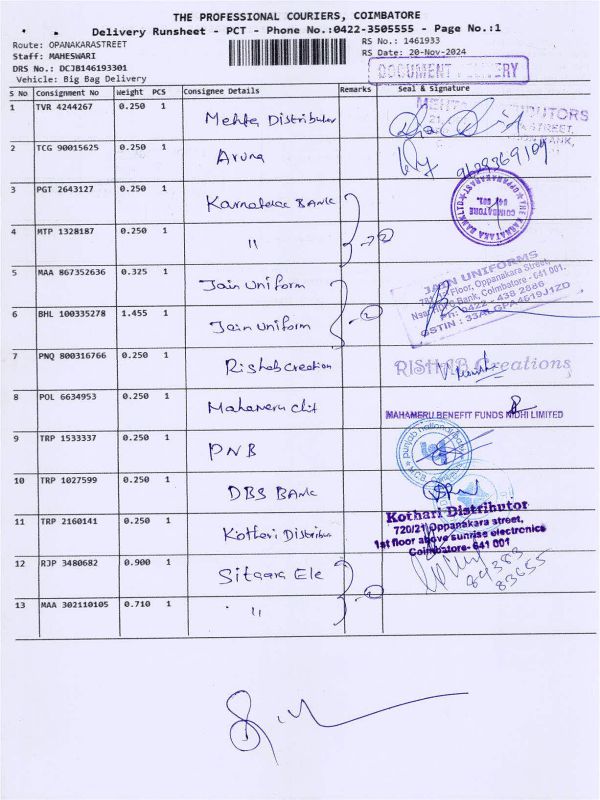 THE PROFESSIONAL COURIERS, COIMBATORE
Delivery Runsheet - PCT - Phone No.:0422-3505555 - Page No.:1
Route: OPANAKARASTREET
RS No.: 1461933
Staff: MAHESWARI
RS Date: 20-Nov-2024
DRS No.: DCJB146193301
Vehicle: Big Bag Delivery
DOCUMENT DELIVERY
S No Consignment No Weight PCS Consignee Details Remarks Seal & Signature
1 TVR 4244267 0.250 1 Mehta Distributor
MEHTA DISTRIBUTORS
STREET,
BANK,
2 TCG 90015625 0.250 1 Aruna 9628369104
3 PGT 2643127 0.250 1 Karnataka BANK
THE KARNATAKA BANK LTD
OPPANAKARAST
COIMBATORE
641 001.
4 MTP 1328187 0.250 1 " → 2
5 MAA 867352636 0.325 1 Jain Uniform
JAIN UNIFORMS
Floor, Oppanakara Street,
Near HDFC Bank, Coimbatore - 641 001.
Ph: 0422 - 438 2886
GSTIN : 33ALGPA4619J1ZD
6 BHL 100335278 1.455 1 Jain Uniform
7 PNQ 800316766 0.250 1 Rishab Creation
RISHAB Creations
8 POL 6634953 0.250 1 Mahameru Chit
MAHAMERU BENEFIT FUNDS NIDHI LIMITED
9 TRP 1533337 0.250 1 PNB
punjab national bank
10 TRP 1027599 0.250 1 DBS BANK
11 TRP 2160141 0.250 1 Kothari Distributor
Kothari Distributor
720/21 Oppanakara street,
1st floor above sunrise electronics
Coimbatore- 641 001
12 RJP 3480682 0.900 1 Sitaara Ele
89383
83655
13 MAA 302110105 0.710 1 "